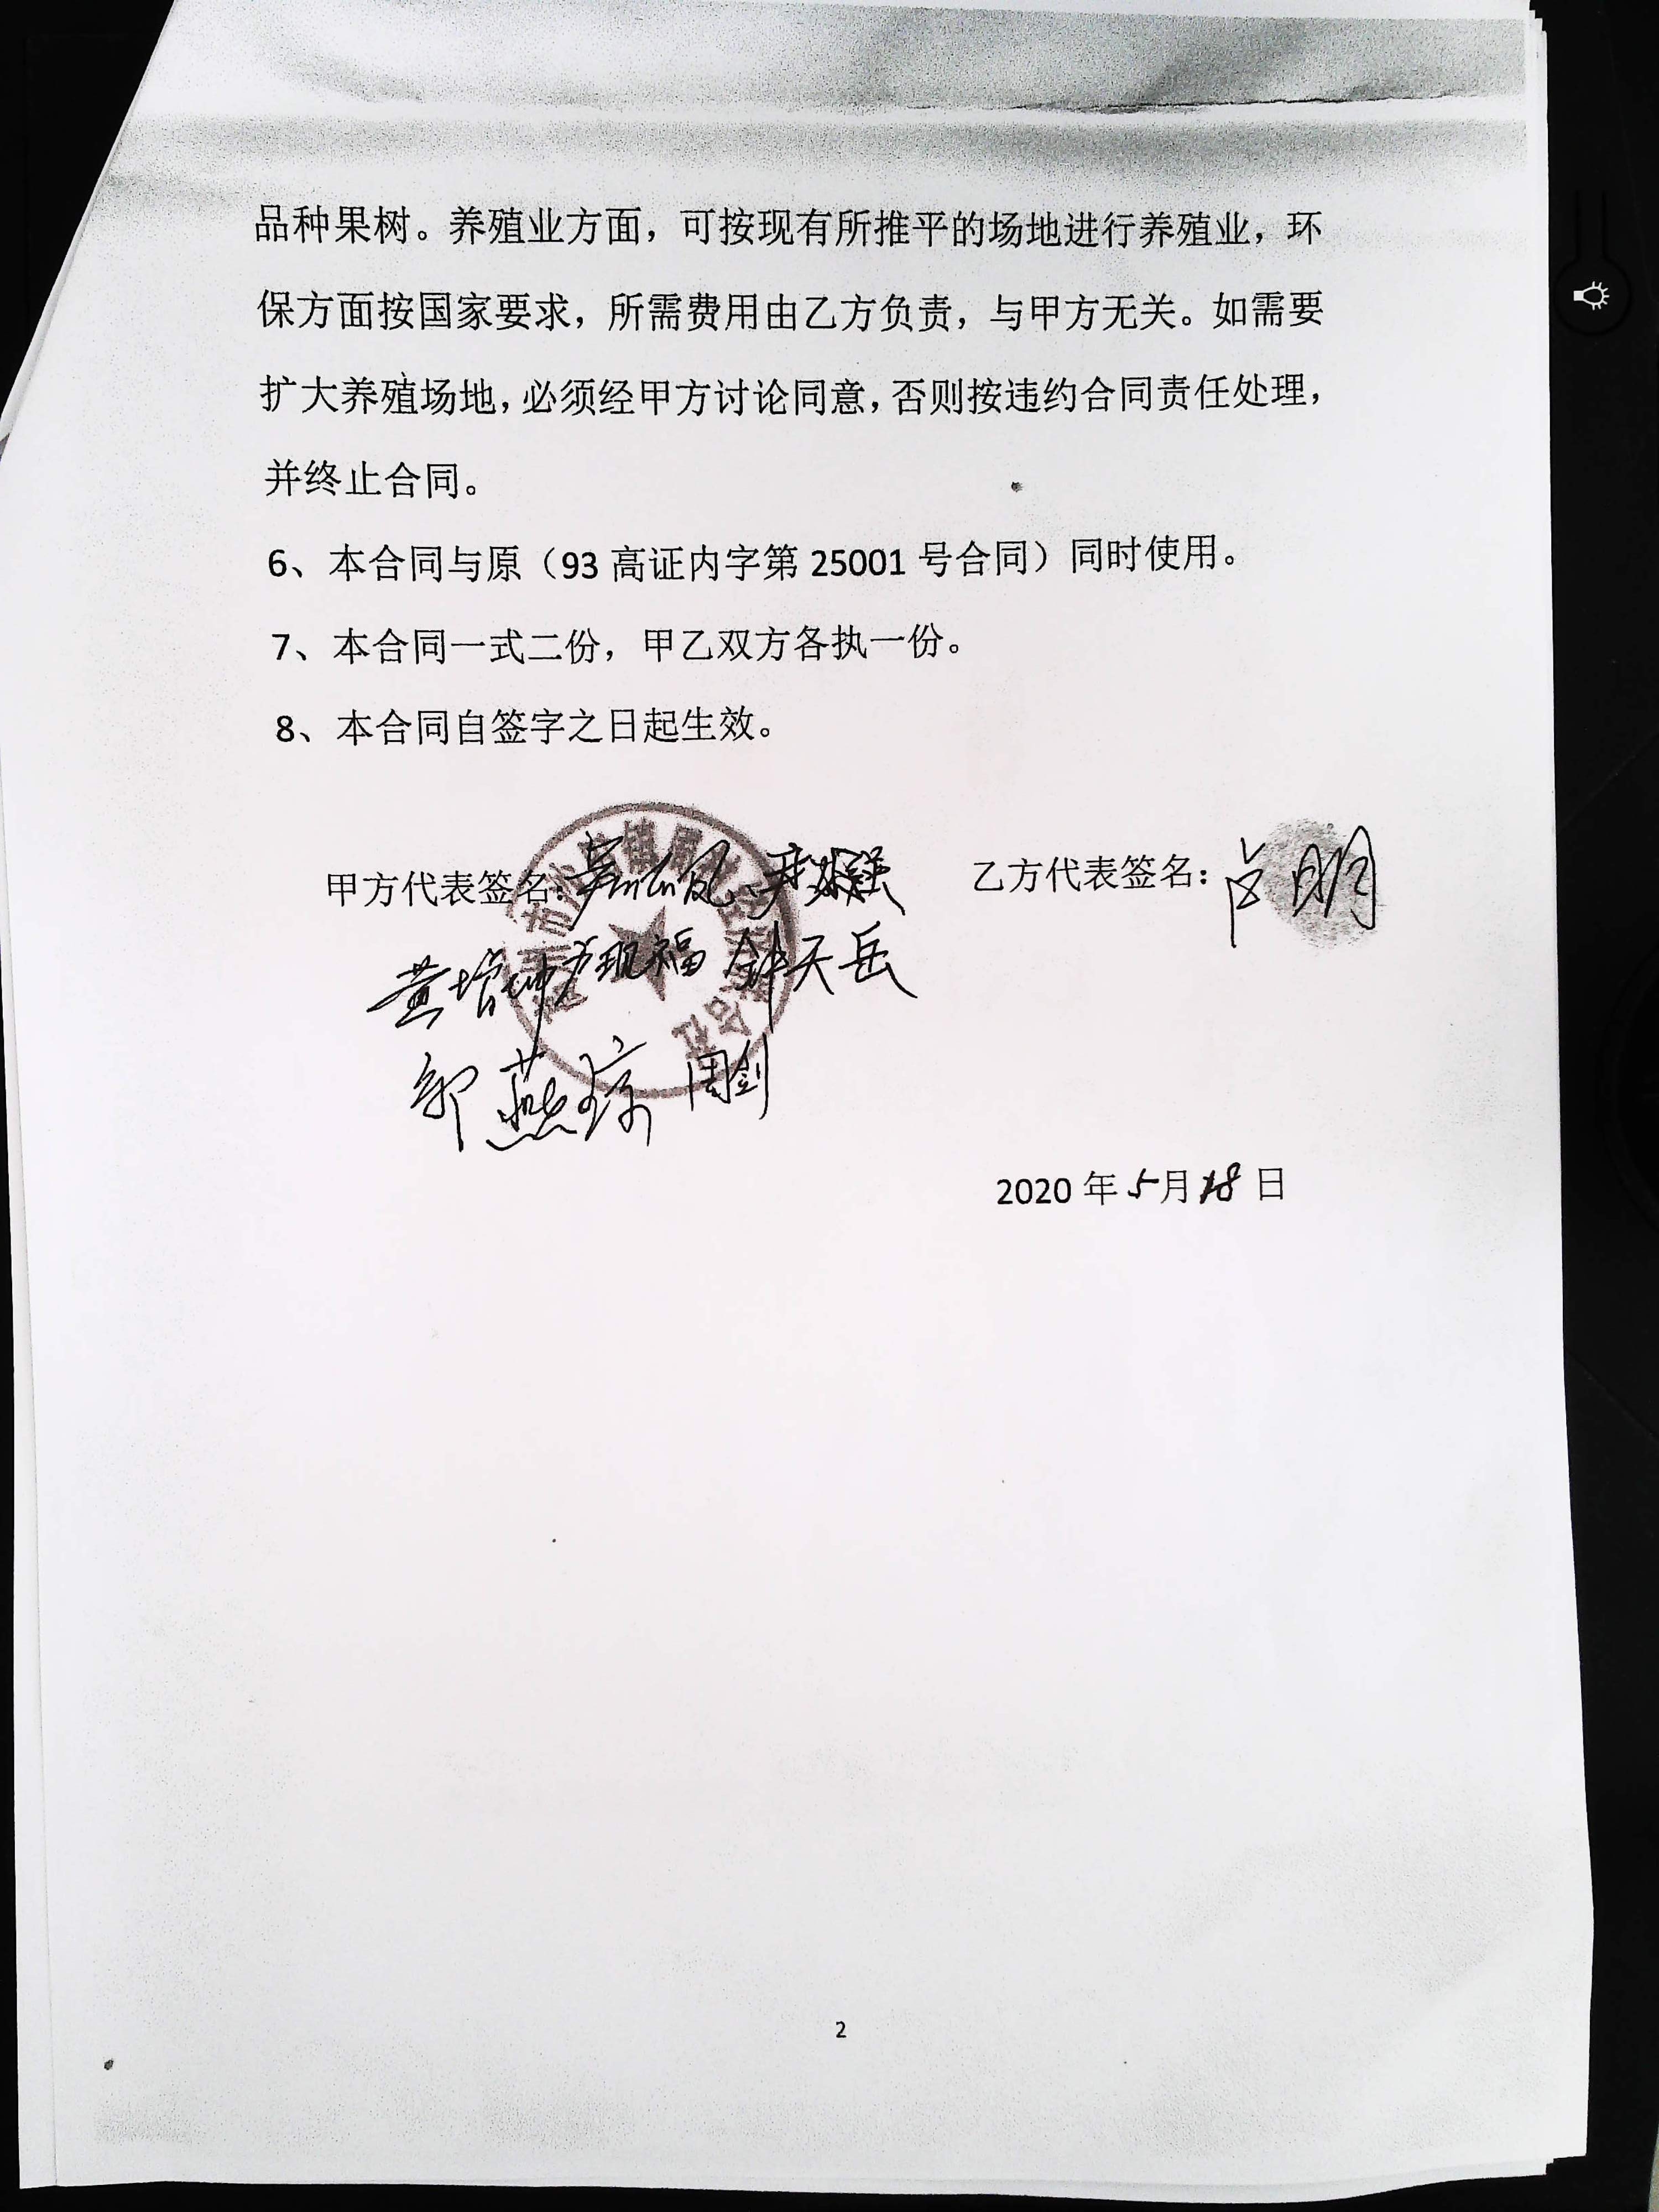 品种果树。养殖业方面，可按现有所推平的场地进行养殖业，环
保方面按国家要求，所需费用由乙方负责，与甲方无关。如需要
扩大养殖场地，必须经甲方讨论同意，否则按违约合同责任处理，
并终止合同。
6、本合同与原（93 高证内字第 25001 号合同）同时使用。
7、本合同一式二份，甲乙双方各执一份。
8、本合同自签字之日起生效。
甲方代表签名： 乙方代表签名：卢明
钟天岳
郭燕琼 周剑
2020 年 5 月 18 日
2